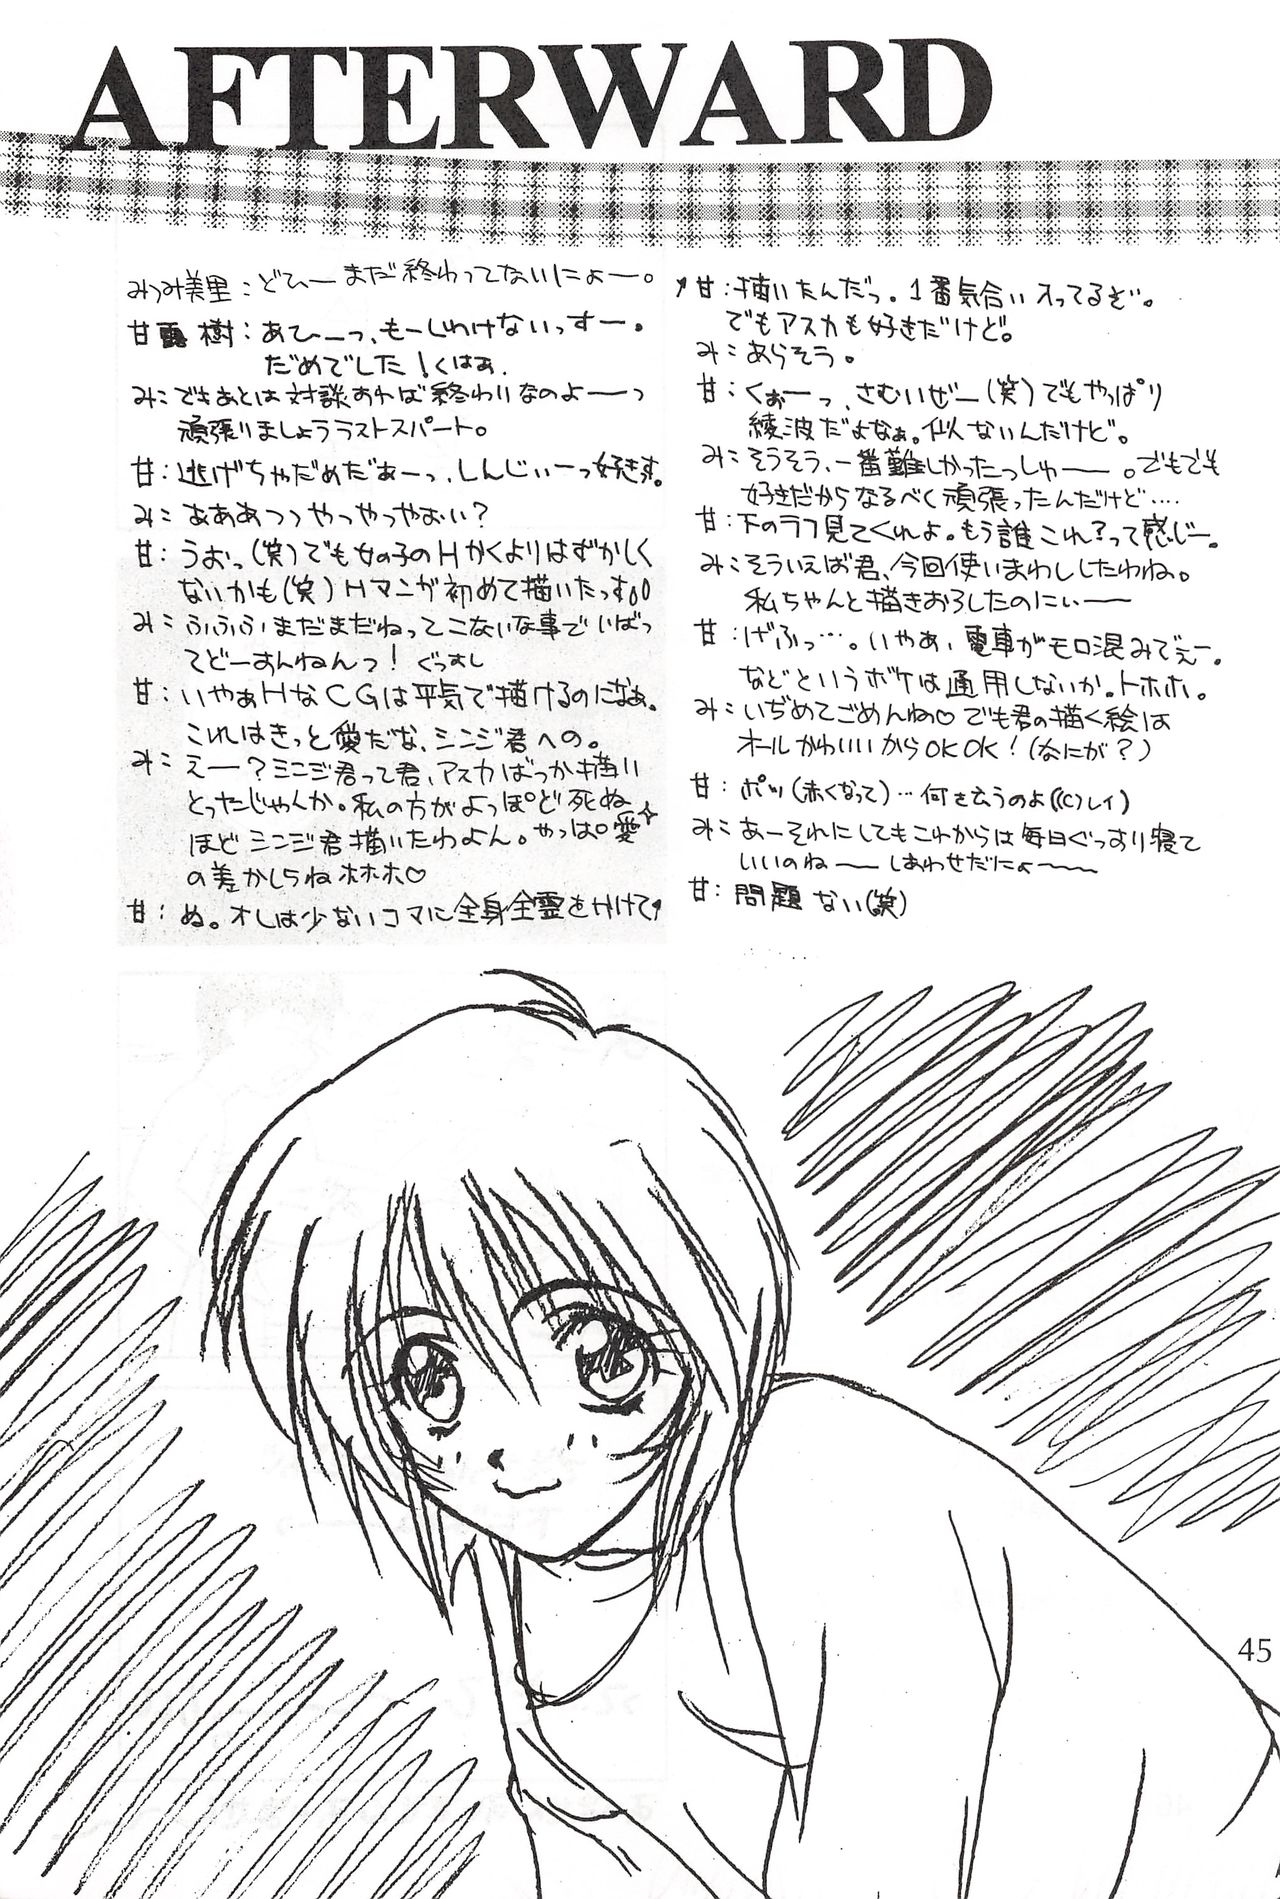 AFTERWARD
みつみ美里:どひーまだ終わってないにょー。
甘露 樹:あひーっ、もーしわけないっすー。
だめでした!くはぁ.
み:でもあとは対談あれば終わりなのよーーっ
頑張りましょうラストスパート。
甘:逃げちゃだめだぁーっ、しんじぃーっ好きす。
み:あああっっやっやっやおい?
甘:うおっ(笑)でも女の子のHかくよりはずかしく
ないかも(笑)Hマンガ初めて描いたっす。
み:ふふふまだまだねってこないな事でいばっ
てどーすんねんっ! ぐっすし
甘:いやぁHなCGは平気で描けるのになぁ。
これはきっと愛だな、シンジ君への。
み:えー?シンジ君って君、アスカばっか描い
とったじゃんか。私の方がよっぽど死ぬ
ほどシンジ君描いたわよん。やっぱ愛
の差かしらねホホホ♡
甘:ぬ。オレは少ないコマに全身全霊をかけて
甘:描いたんだっ。1番気合い入ってるぞ。
でもアスカも好きだけど。
み:あらそう。
甘:くぉーっ、さむいぜー(笑)でもやっぱり
綾波だよなぁ。似ないんだけど。
み:そうそう、一番難しかったっしゅーー。でもでも
好きだからなるべく頑張ったんだけど‥‥
甘:下のラフ見てくれよ。もう誰これ?って感じー。
み:そういえば君、今回使いまわししたわね。
私ちゃんと描きおろしたのにぃーー
甘:げふっ…。いやぁ、電車がモロ混みでぇー。
などというボケは通用しないか。トホホ。
み:いぢめてごめんね♡でも君の描く絵は
オールかわいいからOKOK!(なにが?)
甘:ポッ(赤くなって)…何を言うのよ((C)レイ)
み:あーそれにしてもこれからは毎日ぐっすり寝て
いいのねーー しあわせだにょ〜〜
甘:問題ない(笑)
45